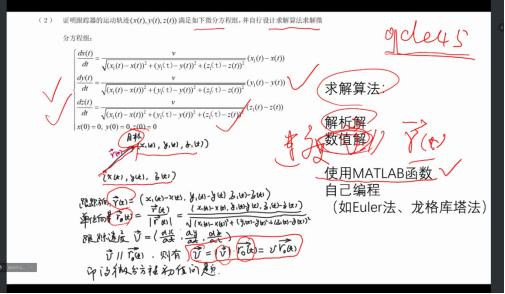 (2) 证明跟踪器的运动轨迹(x(t), y(t), z(t))满足如下微分方程组,并自行设计求解算法求解微
分方程组:
dx(t)/dt = v/√((x₁(t)−x(t))²+(y₁(t)−y(t))²+(z₁(t)−z(t))²) (x₁(t)−x(t))
dy(t)/dt = v/√((x₁(t)−x(t))²+(y₁(t)−y(t))²+(z₁(t)−z(t))²) (y₁(t)−y(t))
dz(t)/dt = v/√((x₁(t)−x(t))²+(y₁(t)−y(t))²+(z₁(t)−z(t))²) (z₁(t)−z(t))
x(0)=0, y(0)=0, z(0)=0
ode45
求解算法:
解析解
数值解
r(t)
使用MATLAB函数
自己编程
(如Euler法、龙格库塔法)
目标
(x₁(t), y₁(t), z₁(t))
(x(t), y(t), z(t))
r(t) = (x₁(t)−x(t), y₁(t)−y(t), z₁(t)−z(t))
单位向量 r₀(t) = r(t)/|r(t)| = (x₁(t)−x(t), y₁(t)−y(t), z₁(t)−z(t))/√((x₁(t)−x(t))²+(y₁(t)−y(t))²+(z₁(t)−z(t))²)
跟踪速度 v = (dx/dt, dy/dt, dz/dt)
v // r₀(t), 则有 v = |v| r₀(t) = v r₀(t)
即为微分方程初值问题.